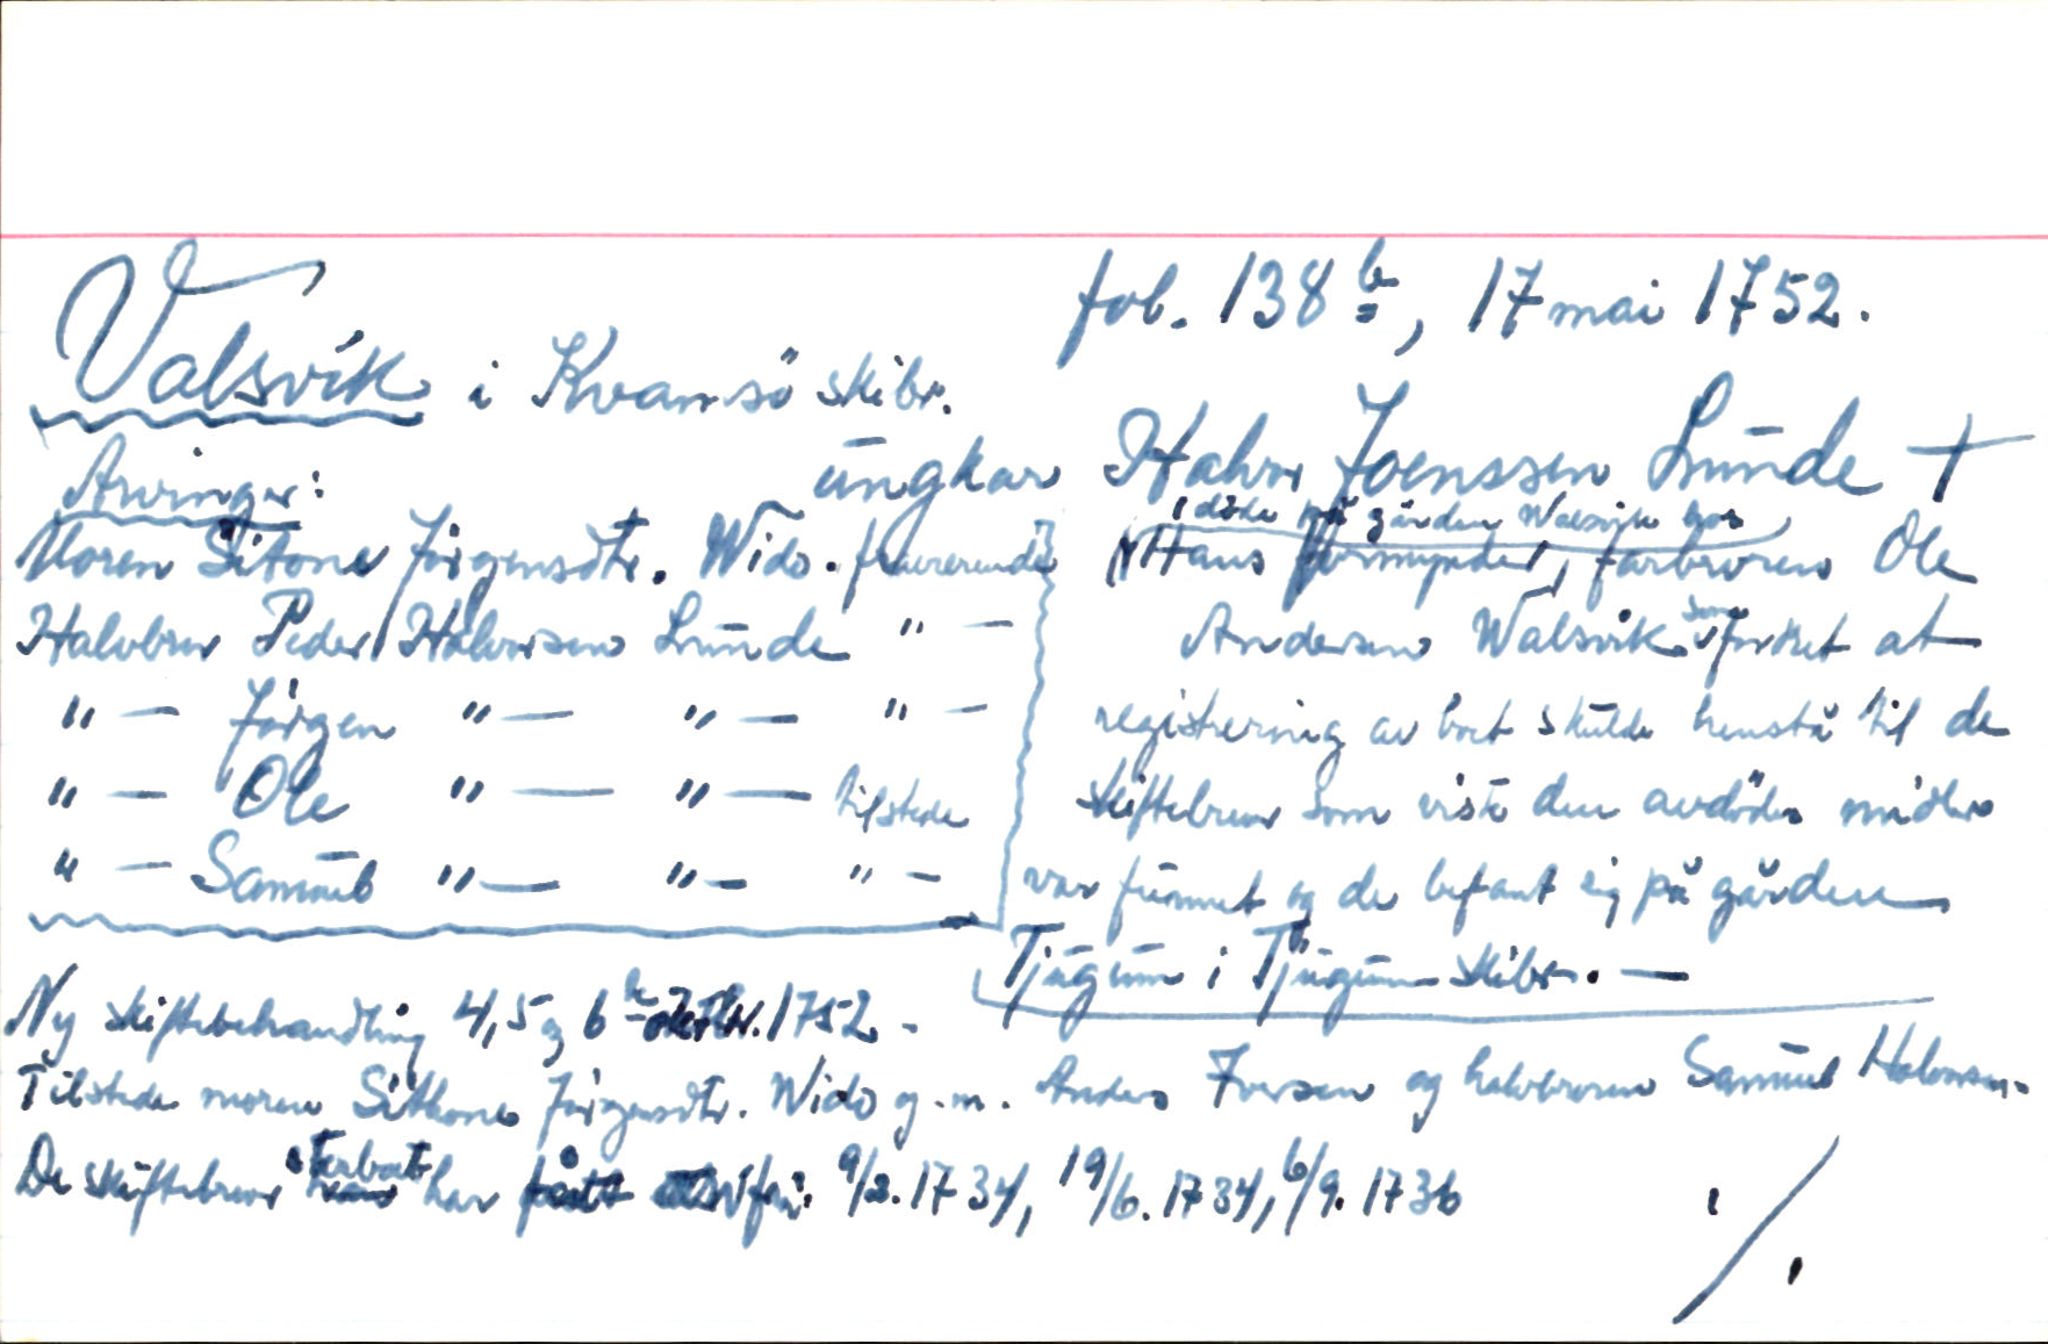 fol. 138 b, 17 mai 1752.
Valsvik i Kvamsö skibr.
ungkar Halvor Joenssen Lunde †
Arvinger:
Moren Sitone Jörgensdtr. Wids. fraværende
Halvbror Peder Halvorsen Lunde " —
" — Jörgen " — " — " —
" — Ole " — " — tilstede
" — Samuel " — " — " —
döde på gården Walsvik hos
Hans formynder, farbroren Ole
Andersen Walsvik som forket at
registrering av boet skulde henstå til de
skiftebrev som viste den avdödes midler
var funnet og de befant sig på gården
Tjugum i Tjugum skibr. —
Ny skiftebehandling 4, 5 og 6 te oktbr. 1752 -
Tilstede moren Sithone Jörgensdtr. Wids g. m. Anders Iversen og halvbroren Samuel Halvorsen.
De skiftebrev sterboet har fått er ifra: 9/2. 1734, 19/6. 1734, 6/9. 1736
./.